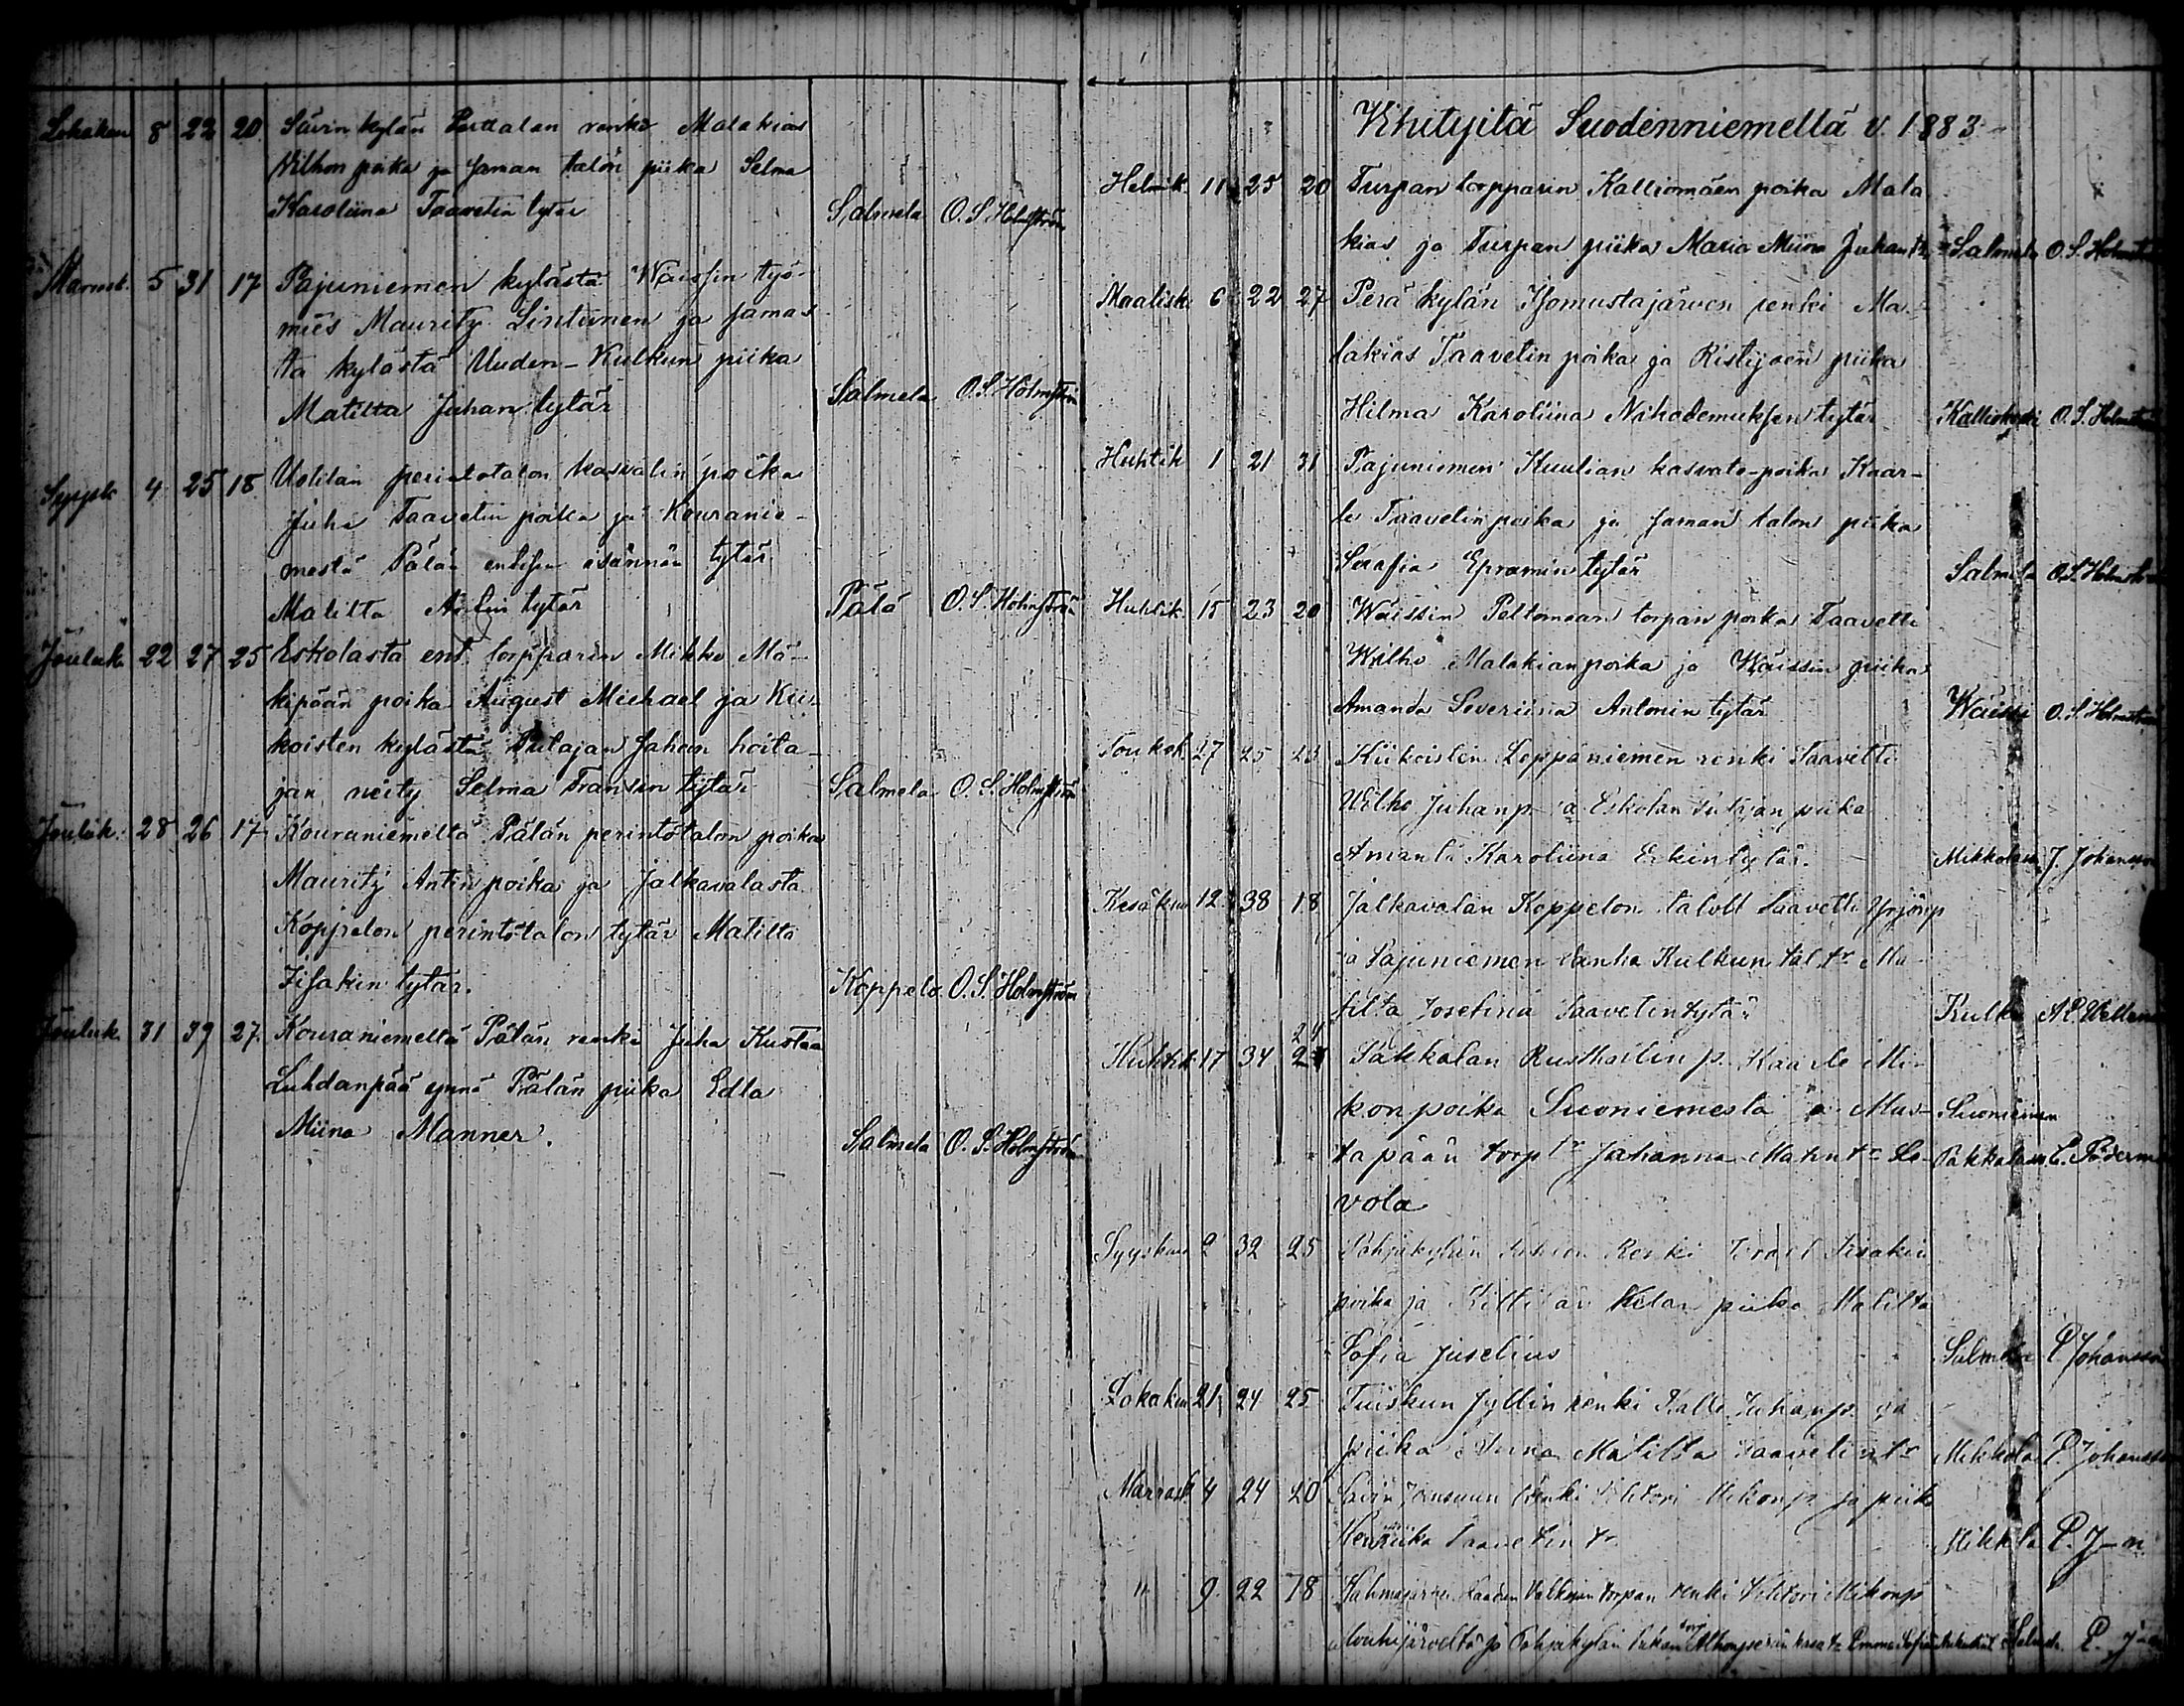 Lokakuu 8 22 20 Sävin kylän renki Malakias
Vilhon poika ja saman talon piika Selma
Karoliina Taavetin tytär Salmela O. S. Holmström
Marrask. 5 31 17 Pajuniemen kylästä Waissin työ-
mies Mauritz Lintunen ja samas
ta kylästä Uuden-Kulkun piika
Matilta Juhan tytär Salmela O. S. Holmström
Syysk 4 25 18 Uotilan perintotalon kasvatin poika
Juha Taavetin poika ja Kouranie-
mestä Pälän entisen isännän tytär
Matilta tytär Pälä O. S. Holmström
Jouluk 22 27 25 Eskolasta ent. torpparin Mikko Mä-
kipään poika August Michael ja Kii-
koisten kylästä Sahan hoita-
jan neity Selma Fransin tytär Salmela O. S. Holmström
Jouluk. 28 26 17 Kouraniemeltä Pälän perintötalon poika
Mauritz Antin poika ja Jalkavalasta
Koppelon perintötalon tytär Matilta
Iisakin tytär. Koppelo O. S. Holmström
Jouluk 31 39 27. Kouraniemeltä Pälän renki Juha Kustaa
Luhdanpää ynnä Pälän piika Edla
Miina Manner. Salmela O. S. Holmström
Vihityitä Suodenniemellä v. 1883
Helmik. 11 25 20 Turpan torpparin Kalliomäen poika Mala
kias ja Turpan piika Maria Miina Juhan tr. Salmela O. S. Holmström
Maalisk 6 22 27 Perä kylän renki Ma-
lakias Taavetin poika ja Ristijoen piika
Hilma Karoliina Nikodemuksen tytär Kalliokoski O. S. Holmström
Huhtik 1 21 31 Pajuniemen Kuulian kasvate-poika Kaar-
le Taavetin poika ja saman talon piika
Serafia Epramin tytär Salmela O. S. Holmström
Huhtik. 15 23 20 Wäissin Peltomaan torpan poika Taavetti
Wilho Malakian poika ja Wäissin piika
Amanda Severiina Antonin tytär Wäissi O. S. Holmström
Toukok. 27 25 23 Kiikoisten Leppäniemen renki Taavetti
Wilho Juhan p. ja Eskolan piika
Amanta Karoliina Erkin tytär. Mikkola J. Johansson
Kesäkuu 12 38 18 Jalkavalan Koppelon Taavetti Yrjönp
ja Pajuniemen Vanha Kulkun tal tr Ma-
tilta Josefina Taavetin tytär Kulku
24
Huhtik 17 34 Pakkalan Rusthollin p. Kaarle Mi-
kon poika Suoniemestä ja Mus- Suoniemen
ta pään torp tr Johanna Matin tr Le- Pakkalassa
vola
Syyskuu 2 32 25 Pohjakylän Renki Israel Iisakin
poika ja piika Matilta
Sofia Juselius Salmela P. Johansson
Lokakuu 21 24 25 Tuiskun Jyllin renki Kalle Juhanp. ja
piika Matilta Taavetin tr Mikkola P. Johansson
Marrask 4 24 20 Sävin renki Vihtori Mikonp ja piika
Henriika Taavetin tr Mikkola P. J-n
" 9. 22 18 torpan renki Vihtori Mikonp
Mouhijärveltä ja Pohjakylän Emma Sofia Salmela P. J-n